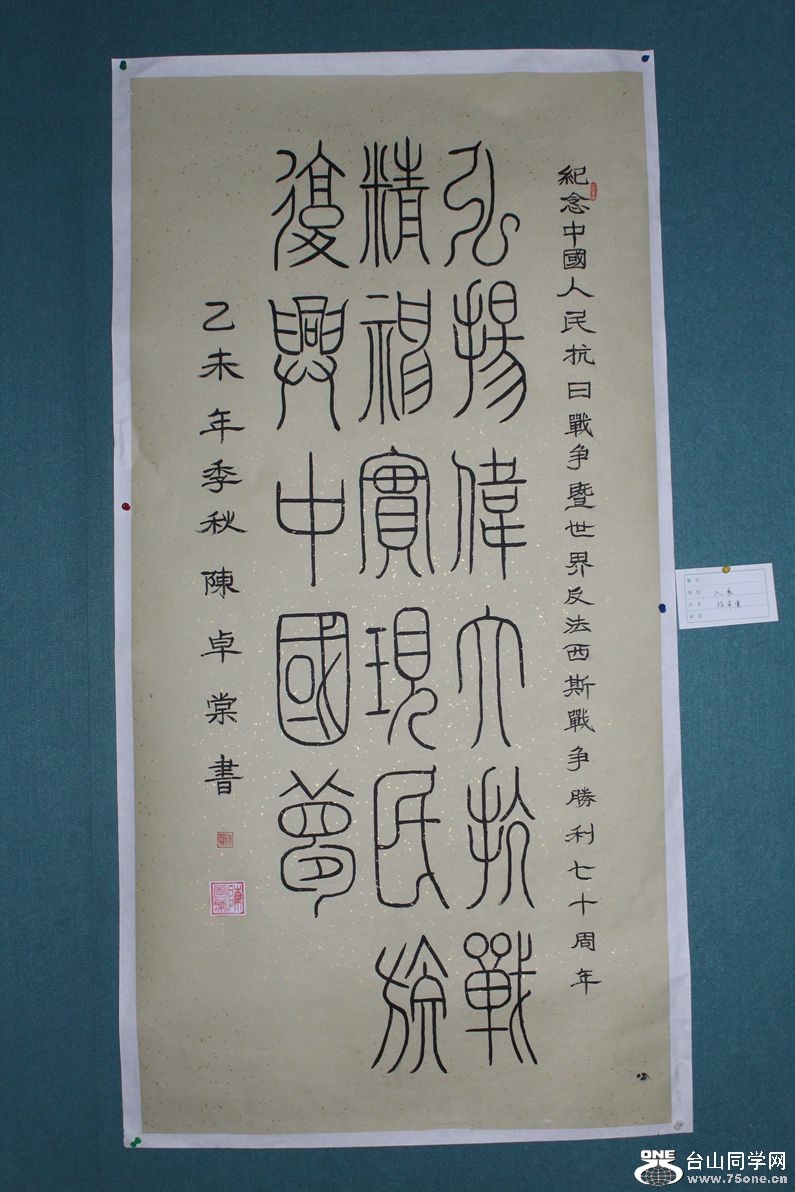 紀念中國人民抗日戰争暨世界反法西斯戰争勝利七十周年
弘揚偉大抗戰
精神實現民族
復興中國夢
乙未年季秋陳卓棠書
入展
ONE
台山同学网
www.75one.cn